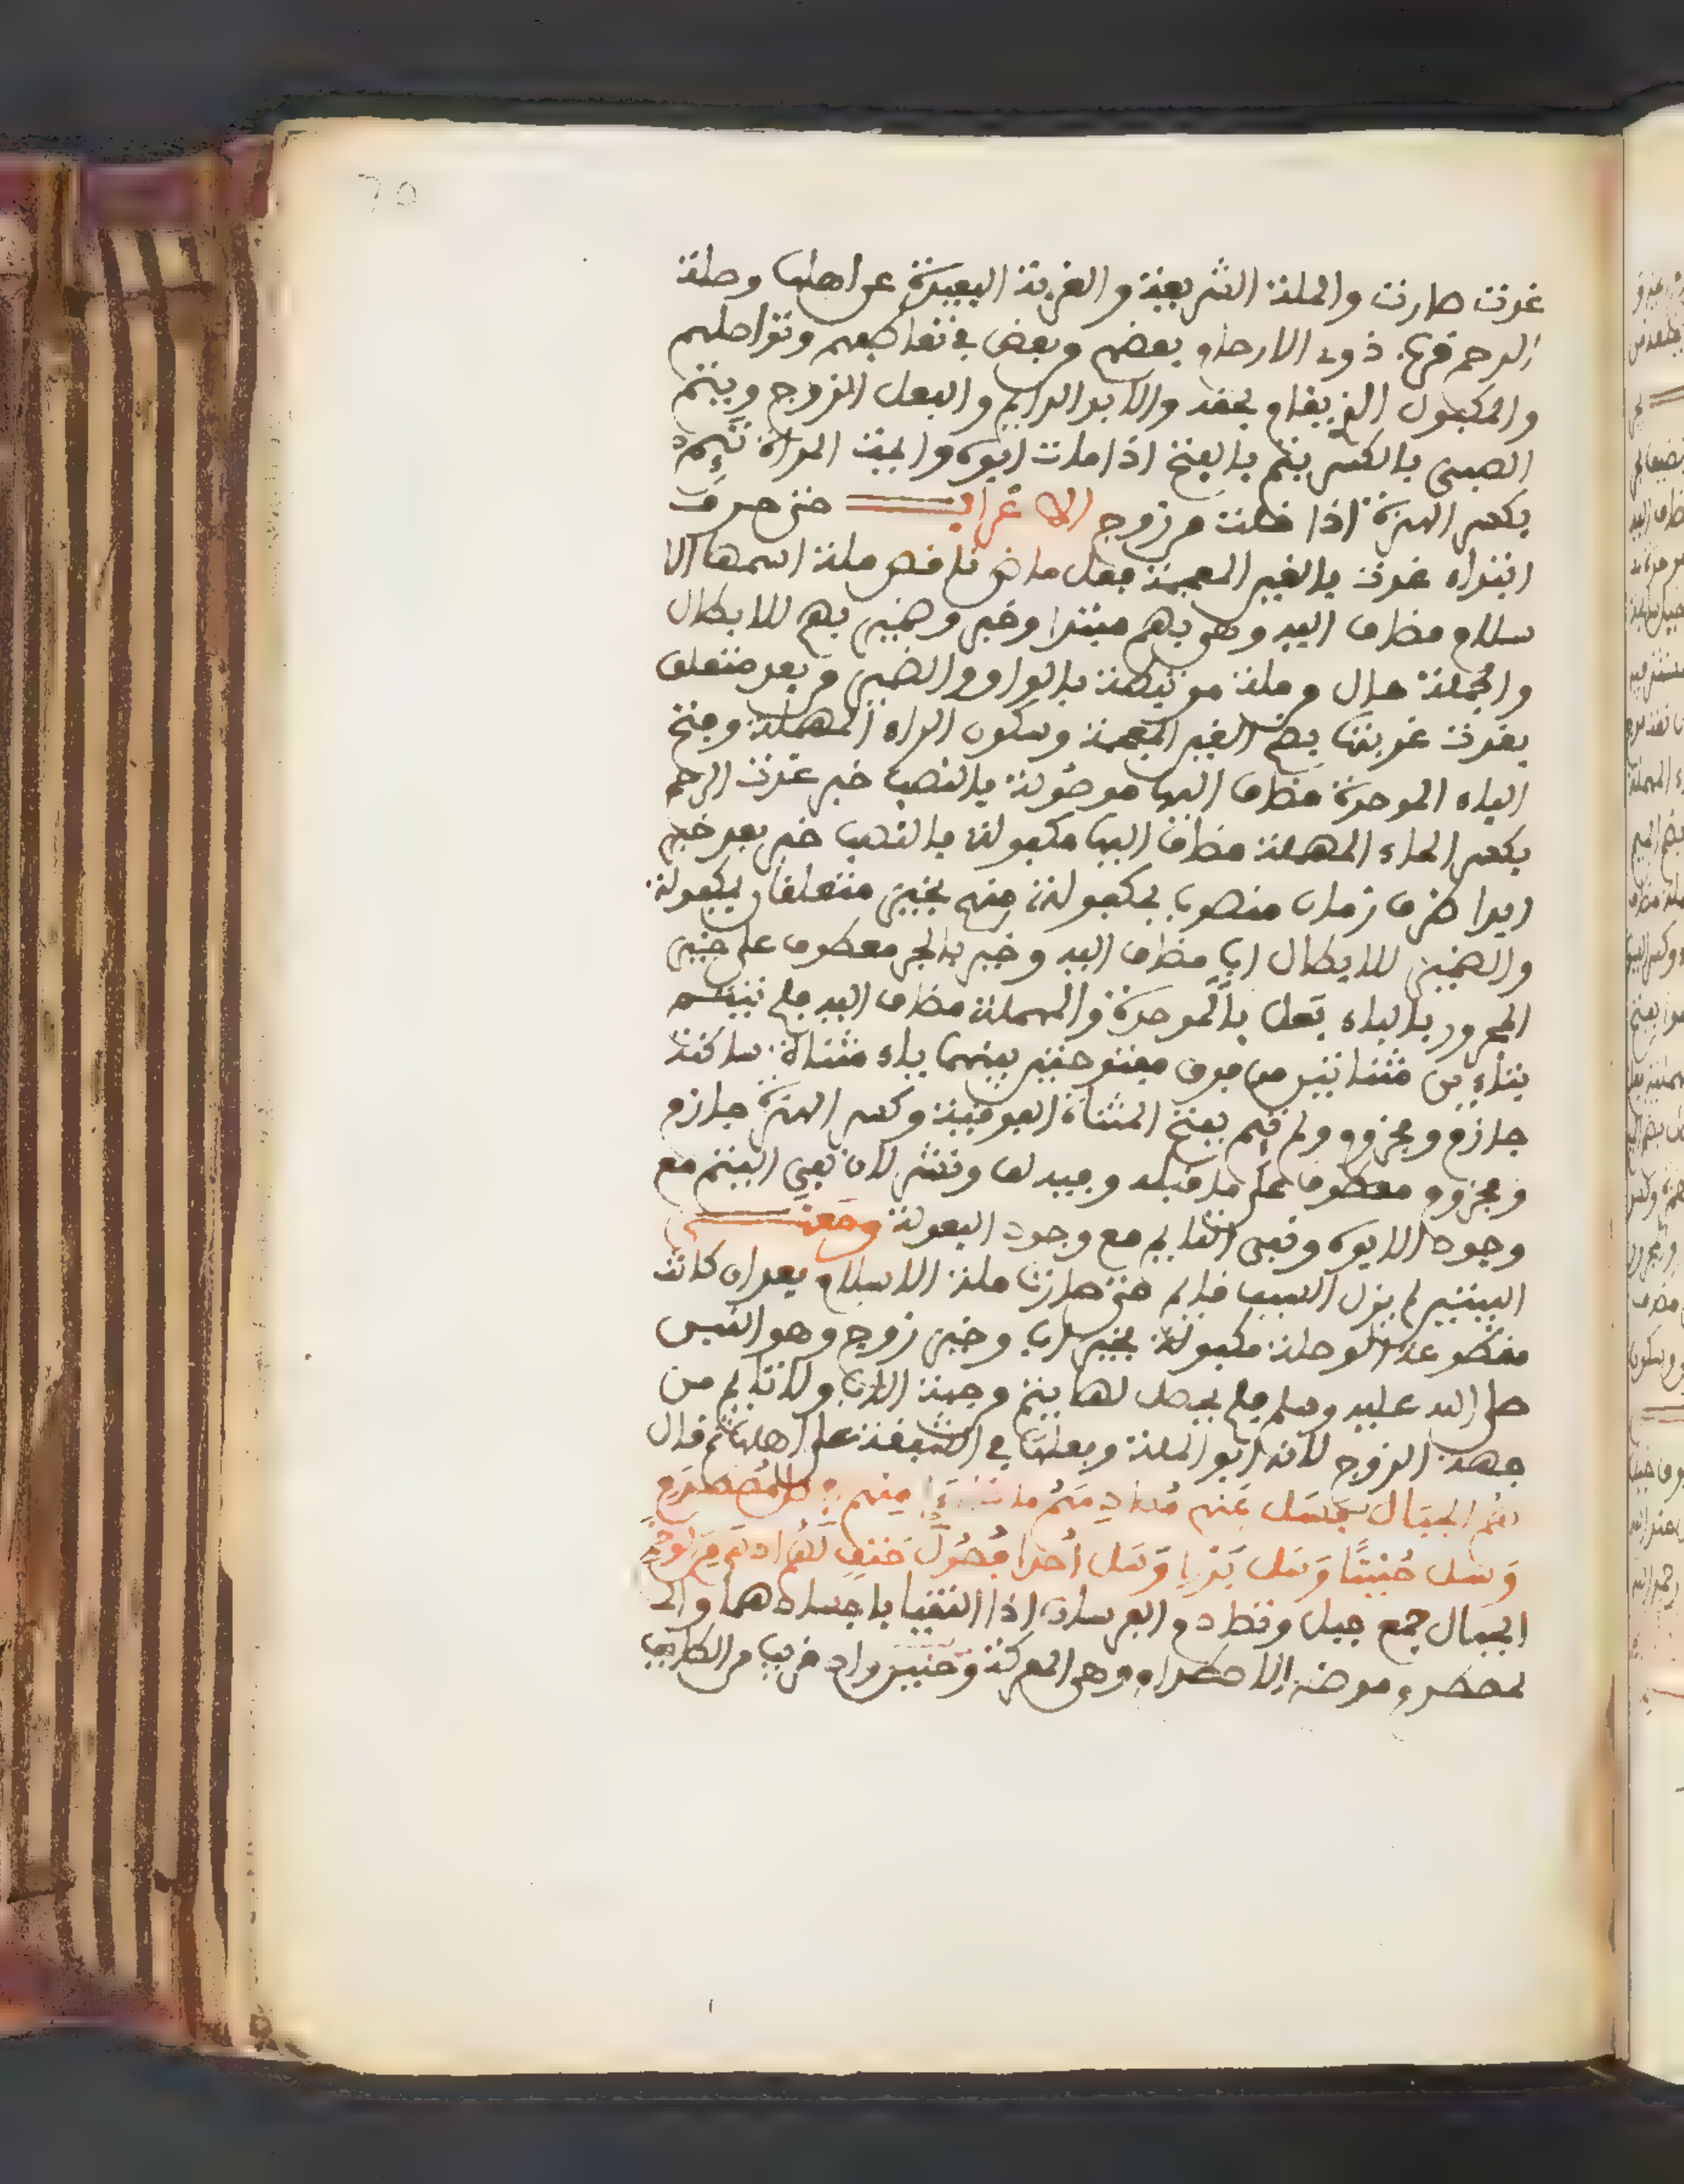 غدت صارت والملة الشريعة والغربة البعيدة عن اهلها وصلة
الرحم قرب ذوى الارحام بعضهم وبعض في تعاطفهم وتواصلهم
والمكفول الذي يقام بحقه والاب الوالد والبعل الزوج ويتم
الصبى بالكسر يتم بالفتح اذا مات ابوه والمت المراة تئيم
بكسر الهمزة اذا خلت من زوج الاعراب حتى حرف
ابتداء غدت بالغين المعجمة فعل ماض ناقص ملة اسمها الا
سلام مضاف اليه وهى بهم مبتدا وخبر وضمير بهم للابطال
والجملة حال من ملة مرتبطة بالواو والضمير من بعد متعلق
بغدت غربتها بضم الغين المعجمة وسكون الراء المهملة وفتح
الباء الموحدة مضاف اليها موصولة بالنصب خبر غدت الرحم
بكسر الحاء المهملة مضاف اليها مكفولة بالنصب خبر بعد خبر
ابدا ظرف زمان منصوب بمكفولة منهم بخير متعلقان بمكفولة
والضمير للابطال اب مضاف اليه وخير بالجر معطوف على خير
المجرور بالباء بعل بالموحدة والمهملة مضاف اليه فلم تيتم
بتاءين مثناتين من فوق مفتوحتين بينهما ياء مثناة ساكنة
جازم ومجزوم ولم تئم بفتح المثناة الفوقية وكسر الهمزة جازم
ومجزوم معطوف على ما قبله وفيه لف ونشر لان نفي اليتم مع
وجود الابوه ونفى التايم مع وجود البعولة ومعنى
البيتين لم يزل السيف قايم حتى صارت ملة الاسلام بعد ان كانت
مقطوعة الوصلة مكفولة بخير اب وخير زوج وهو النبي
صلى الله عليه وسلم فلم يحصل لها يتم من جهة الاب ولا تايم من
جهة الزوج لانه ابو الملة وبعلها في الشفقة على اهلها ثم قال
هم الجبال فسل عنهم مصادمهم ماذا رءا منهم في كل مصطدم
وسل حنينا وسل بدرا وسل احدا فصول حتف لهم ادهى من الوخم
الجبال جمع جبل وتصادم الفرسان اذا التقيا باجسادهما والـ
ـمصطدم موضع الاصطدام وهى المعركة وحنين واد قريب من الطائف